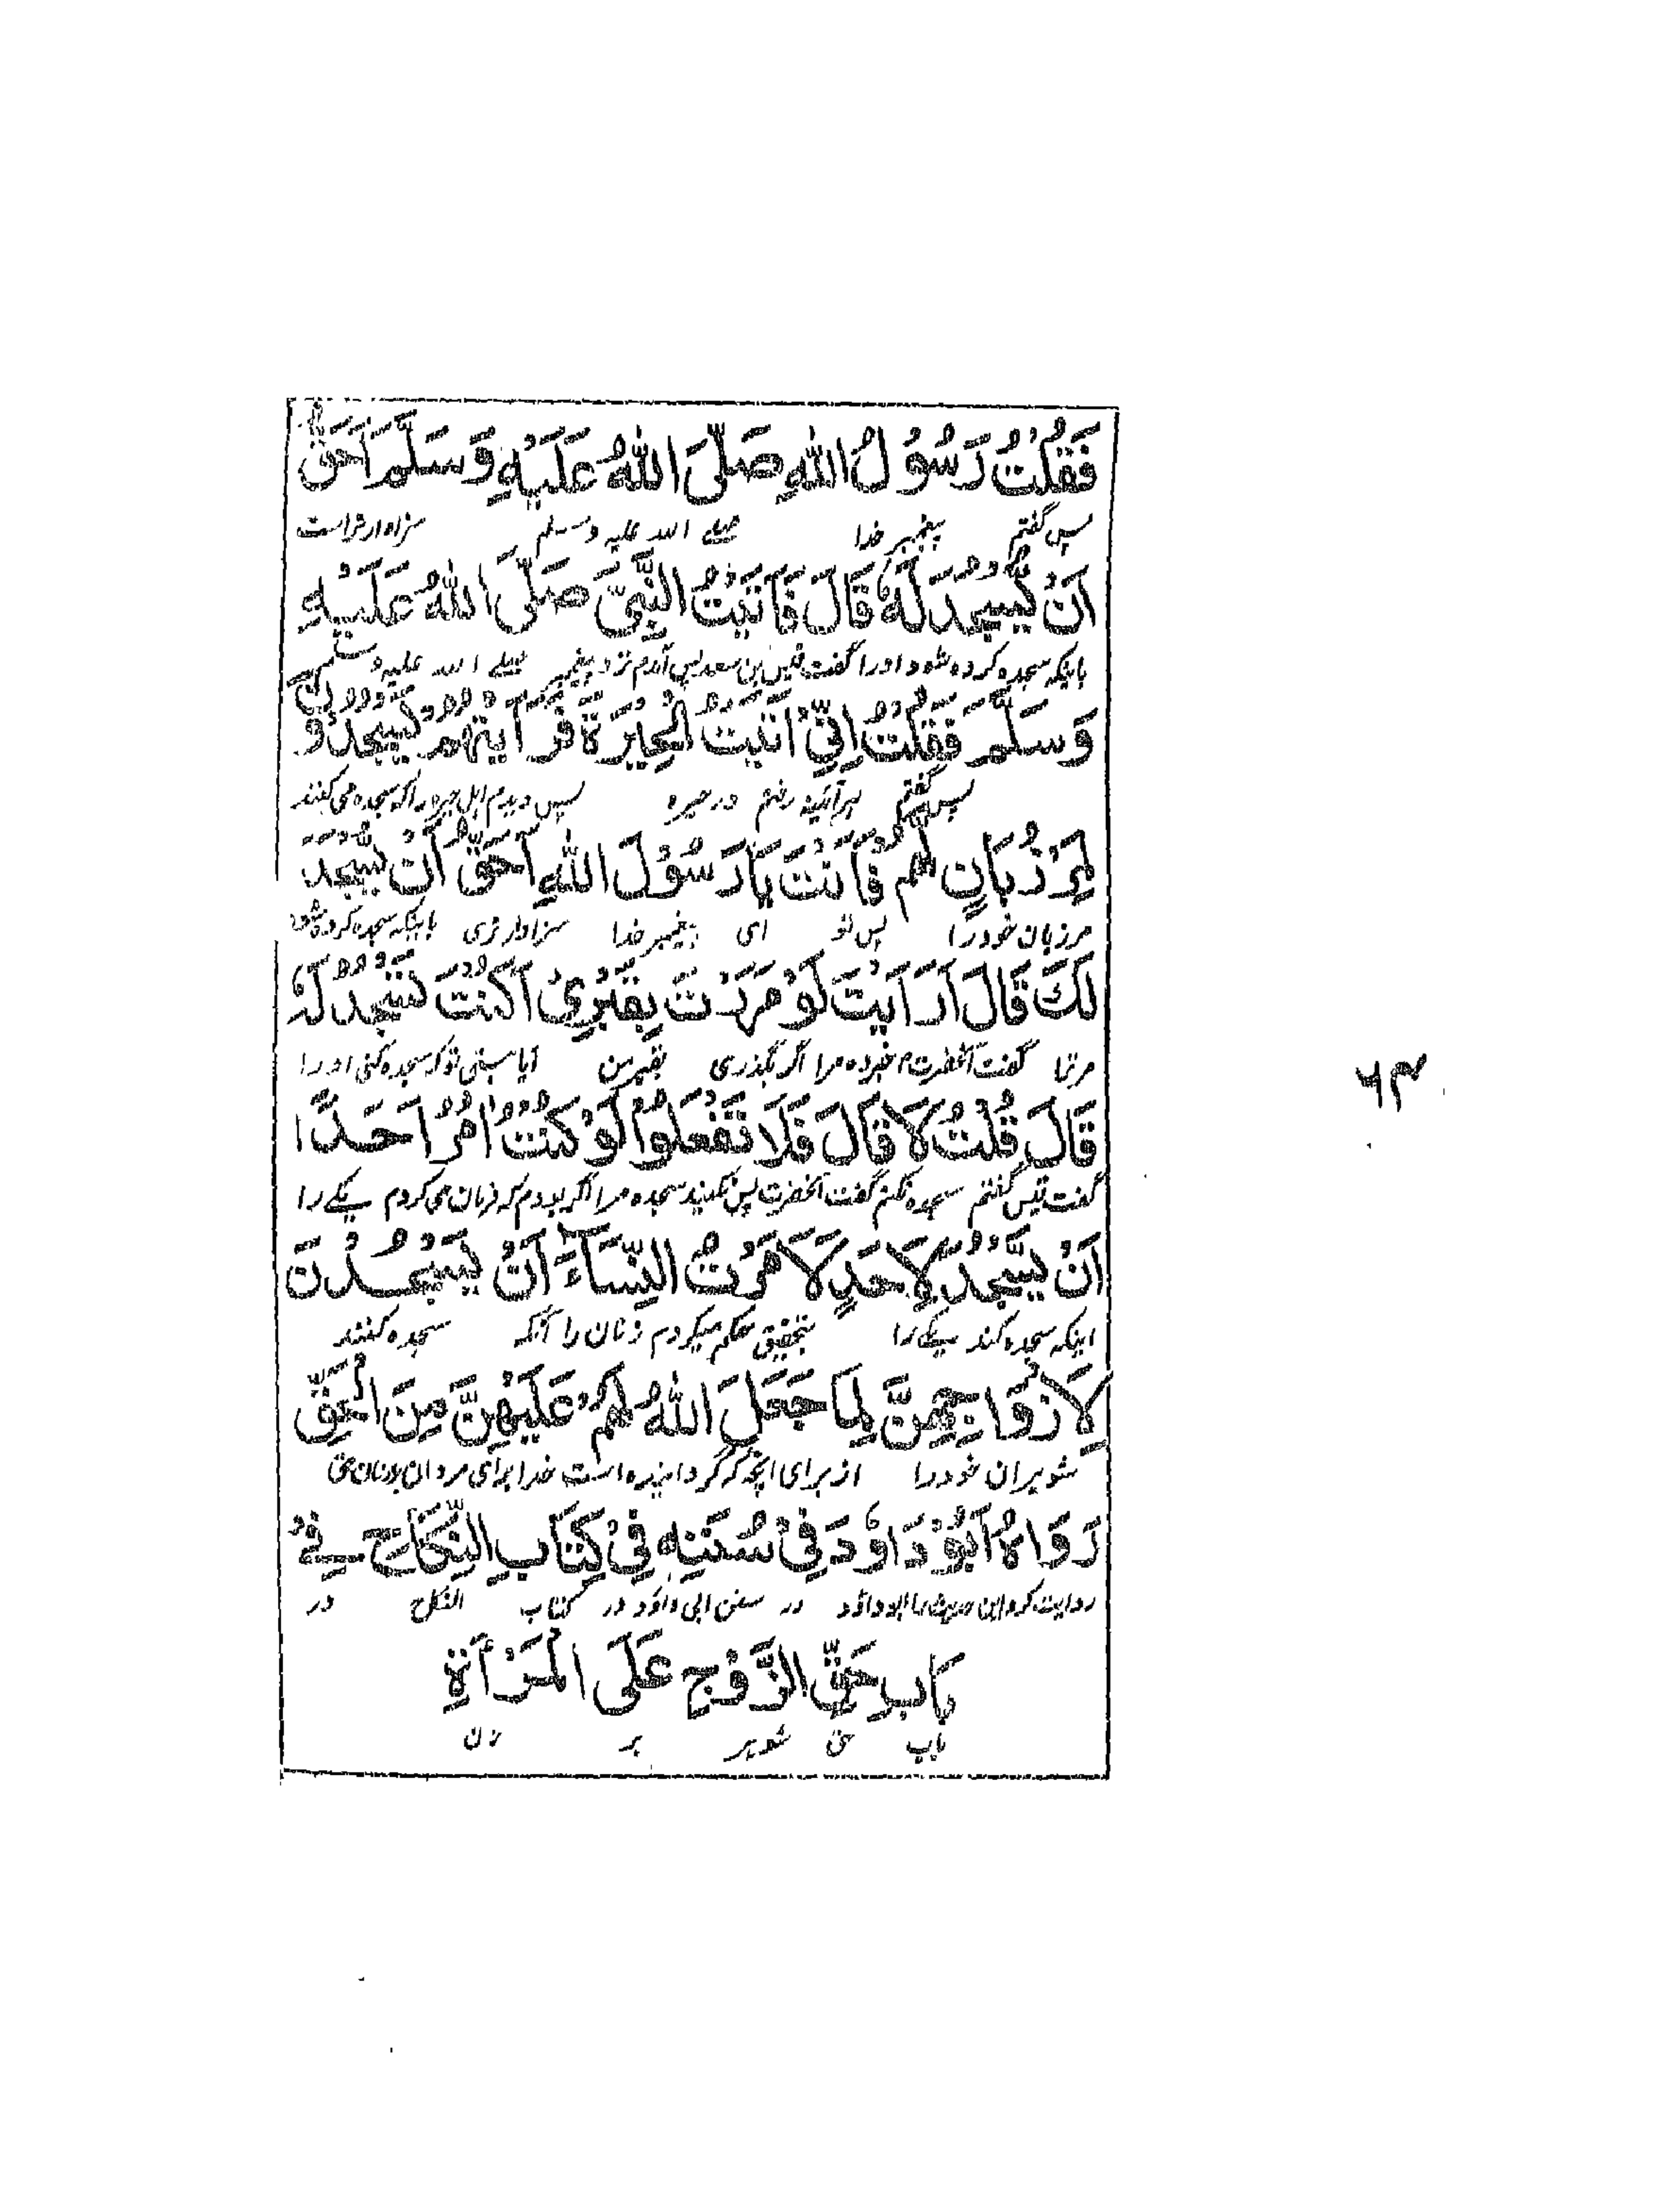 فَقُلْتُ رَسُوْلُ اللهِ صَلَّى اللهُ عَلَيْهِ وَسَلَّمَ اَحَقُّ
پس گفتم پیغمبر خدا صلے اللہ علیہ وسلم سزاوارتراست
اَنْ يُّسْجَدَ لَهٗ قَالَ فَاَتَيْتُ النَّبِىَّ صَلَّى اللهُ عَلَيْهِ
باینکہ سجدہ کردہ شود اورا گفت قیس بن سعد پس آمدم نزد پیغمبر صلے اللہ علیہ وسلم
وَسَلَّمَ فَقُلْتُ اِنِّىْ اَتَيْتُ الْحِيْرَةَ فَرَاَيْتُهُمْ يَسْجُدُوْنَ
پس گفتم ہرآئینہ رفتم درحیرہ پس دیدم اہل حیرہ راکہ سجدہ می کنند
لِمَرْزُبَانٍ لَّهُمْ فَاَنْتَ يَا رَسُوْلَ اللهِ اَحَقُّ اَنْ يُّسْجَدَ
مرزبان خودرا پس تو ای پیغمبر خدا سزاوارتری باینکہ سجدہ کردہ شود
لَكَ قَالَ اَرَاَيْتَ لَوْ مَرَرْتَ بِقَبْرِىْ اَكُنْتَ تَسْجُدُ لَهٗ
مرترا گفت آنحضرت خبردہ مرا اگر بگذری بقبر من آیا ہستی توکہ سجدہ کنی اورا
قَالَ قُلْتُ لَا قَالَ فَلَا تَفْعَلُوْا لَوْ كُنْتُ اٰمُرُ اَحَدًا
گفت قیس گفتم سجدہ نکنم گفت آنحضرت پس نکنید سجدہ مرا اگر بودم کہ فرمان می کردم یکے را
اَنْ يَّسْجُدَ لِاَحَدٍ لَاَمَرْتُ النِّسَآءَ اَنْ يَّسْجُدْنَ
اینکہ سجدہ کند یکے را بتحقیق حکم میکردم زنان را آنکہ سجدہ کنند
لِاَزْوَاجِهِنَّ لِمَا جَعَلَ اللهُ لَهُمْ عَلَيْهِنَّ مِنَ الْحَقِّ
شوہران خودرا از برای آنچہ کہ گردانیدہ است خدا برای مردان برزنان حق
رَوَاهُ اَبُوْ دَاوٗدَ فِىْ سُنَنِهٖ فِىْ كِتَابِ النِّكَاحِ فِىْ
روایت کرد این حدیث را ابوداؤد در سنن ابی داؤد در کتاب النکاح در
بَابِ حَقِّ الزَّوْجِ عَلَى الْمَرْأَةِ
باب حق شوہر بر زن
۶۳